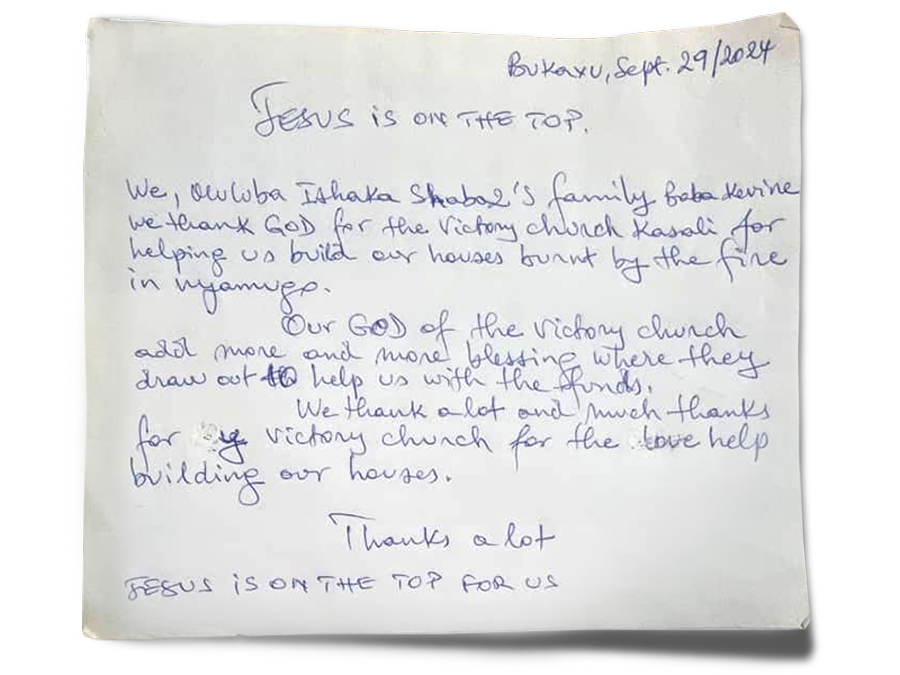 Bukavu, Sept. 29/2024
JESUS IS ON THE TOP.
We, Owluba Ishaka Shabaz's family Baba Kevine
we thank GOD for the victory church Kasali for
helping us build our houses burnt by the fire
in nyamugo.
Our GOD of the victory church
add more and more blessing where they
draw out to help us with the funds.
We thank a lot and much thanks
for victory church for the love help
building our houses.
Thanks a lot
JESUS IS ON THE TOP FOR US